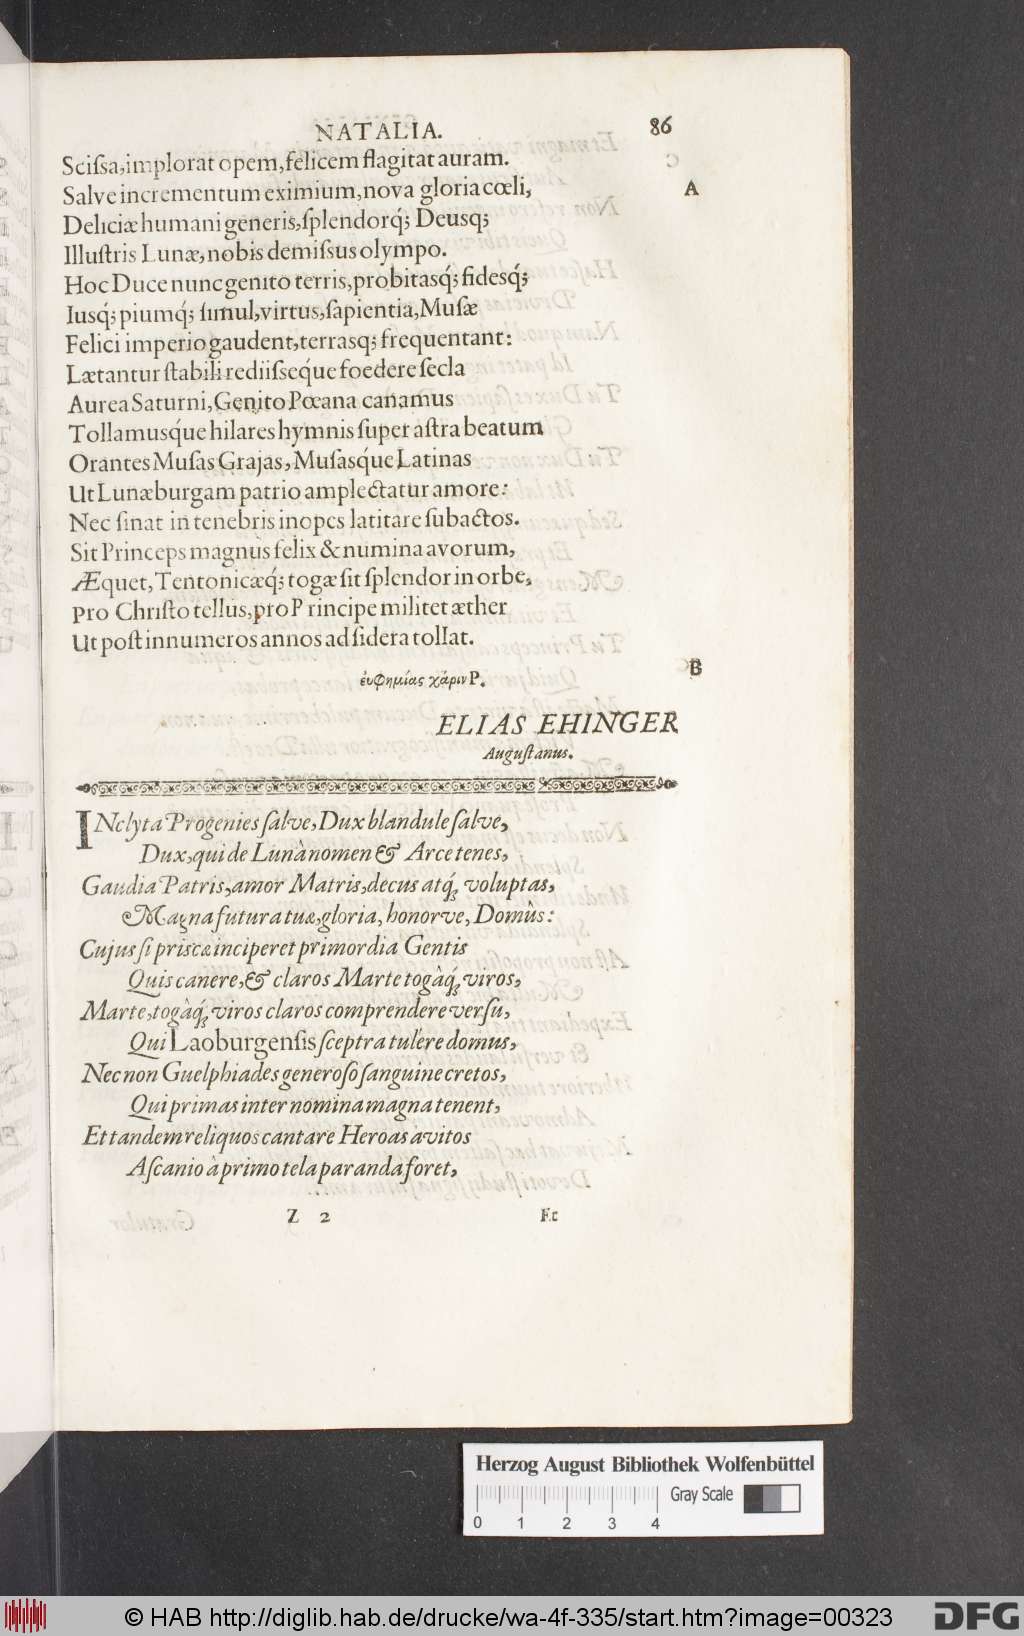 NATALIA. 86
Scissa, implorat opem, felicem flagitat auram.
Salve incrementum eximium, nova gloria cœli, A
Deliciæ humani generis, splendorq́; Deusq;
Illustris Lunæ, nobis demissus olympo.
Hoc Duce nunc genito terris, probitasq́; fidesq́;
Iusq́; piumq́; simul, virtus, sapientia, Musæ
Felici imperio gaudent, terrasq; frequentant:
Lætantur stabili rediisseq́ue foedere secla
Aurea Saturni, Genito Pœana canamus
Tollamusq́ue hilares hymnis super astra beatum
Orantes Musas Grajas, Musasq́ue Latinas
Ut Lunæburgam patrio amplectatur amore:
Nec sinat in tenebris inopes latitare subactos.
Sit Princeps magnus felix & numina avorum,
Æquet, Tentonicæq́; togæ sit splendor in orbe,
Pro Christo tellus, pro Principe militet æther
Ut post innumeros annos ad sidera tollat.
B
ἐυφημίας χάριν P.
ELIAS EHINGER
Augustanus.
INclyta Progenies salve, Dux blandule salve,
Dux, qui de Lunà nomen & Arce tenes,
Gaudia Patris, amor Matris, decus atq́; voluptas,
Magna futura tuæ, gloria, honorve, Domûs:
Cujus si priscæ inciperet primordia Gentis
Quis canere, & claros Marte togàq́; viros,
Marte, togàq́; viros claros comprendere versu,
Qui Laoburgensis sceptra tulêre domus,
Nec non Guelphiades generoso sanguine cretos,
Qui primas inter nomina magna tenent,
Et tandem reliquos cantare Heroas avitos
Ascanio à primo tela paranda foret,
Z 2 Ec
Herzog August Bibliothek Wolfenbüttel
Gray Scale
0 1 2 3 4
© HAB http://diglib.hab.de/drucke/wa-4f-335/start.htm?image=00323 DFG